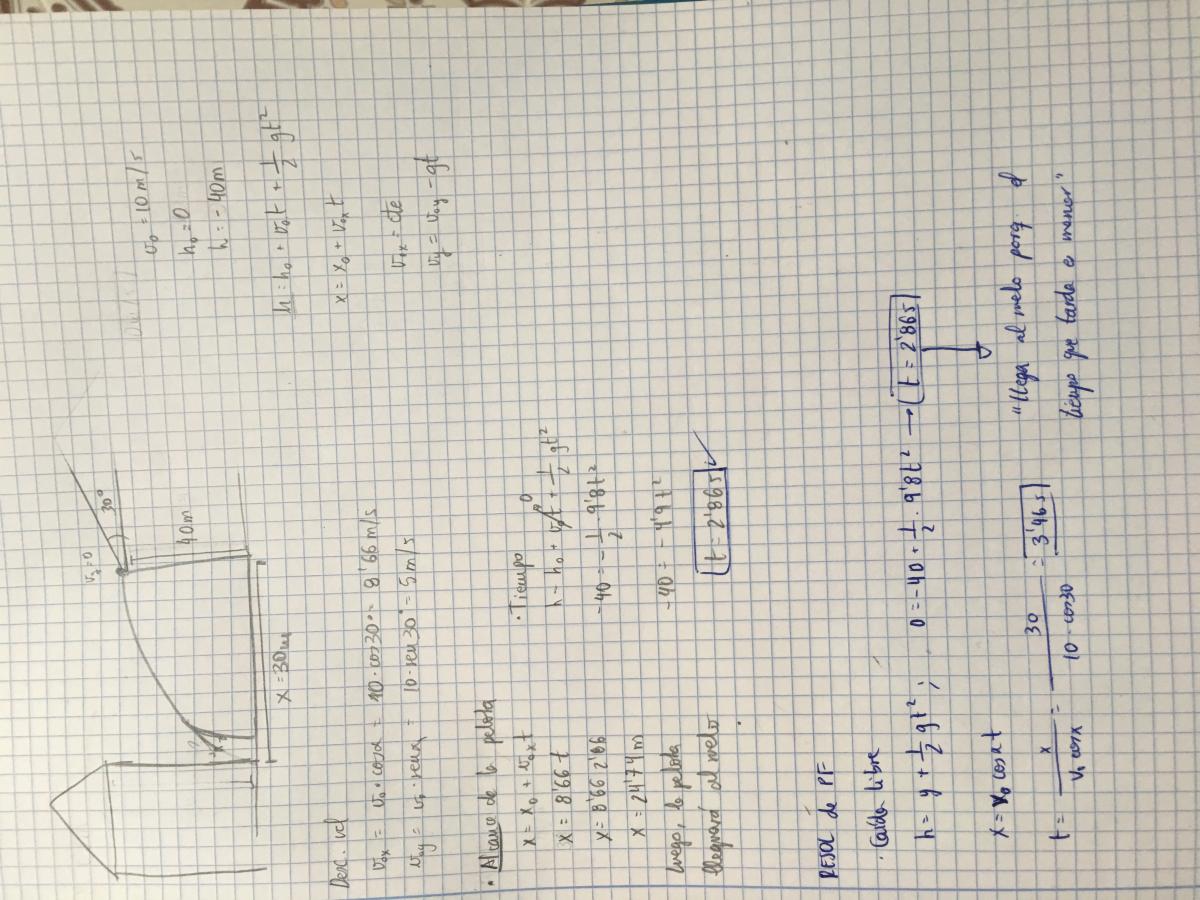 v₀ = 10 m/s
h₀ = 0
h = -40m
h = h₀ + v₀t + 1/2 gt²
x = x₀ + v₀ₓ t
v₀ₓ = cte
v_y = v₀y - gt
v_y = 0
30°
40m
x = 30m
Desc. vel
v₀ₓ = v₀ · cosα = 10 · cos30° = 8'66 m/s
v₀y = v₀ · senα = 10 · sen30° = 5 m/s
· Alcance de la pelota
x = x₀ + v₀ₓ t
x = 8'66 t
x = 8'66 2'86
x = 24'74 m
Luego, la pelota
llegará al suelo
· Tiempo
h - h₀ + v₀t + 1/2 gt²
0
-40 = - 1/2 · 9'8t²
-40 = - 4'9t²
t = 2'86s ✓
RESOL de PF
· Caída libre
h = y + 1/2 gt² ; 0 = -40 + 1/2 · 9'8t² → t = 2'86s
x = v₀ cosα t
t = x / v₀ cosα = 30 / 10 · cos30 = 3'46 s
"llega al suelo porq el
tiempo que tarda e menor"